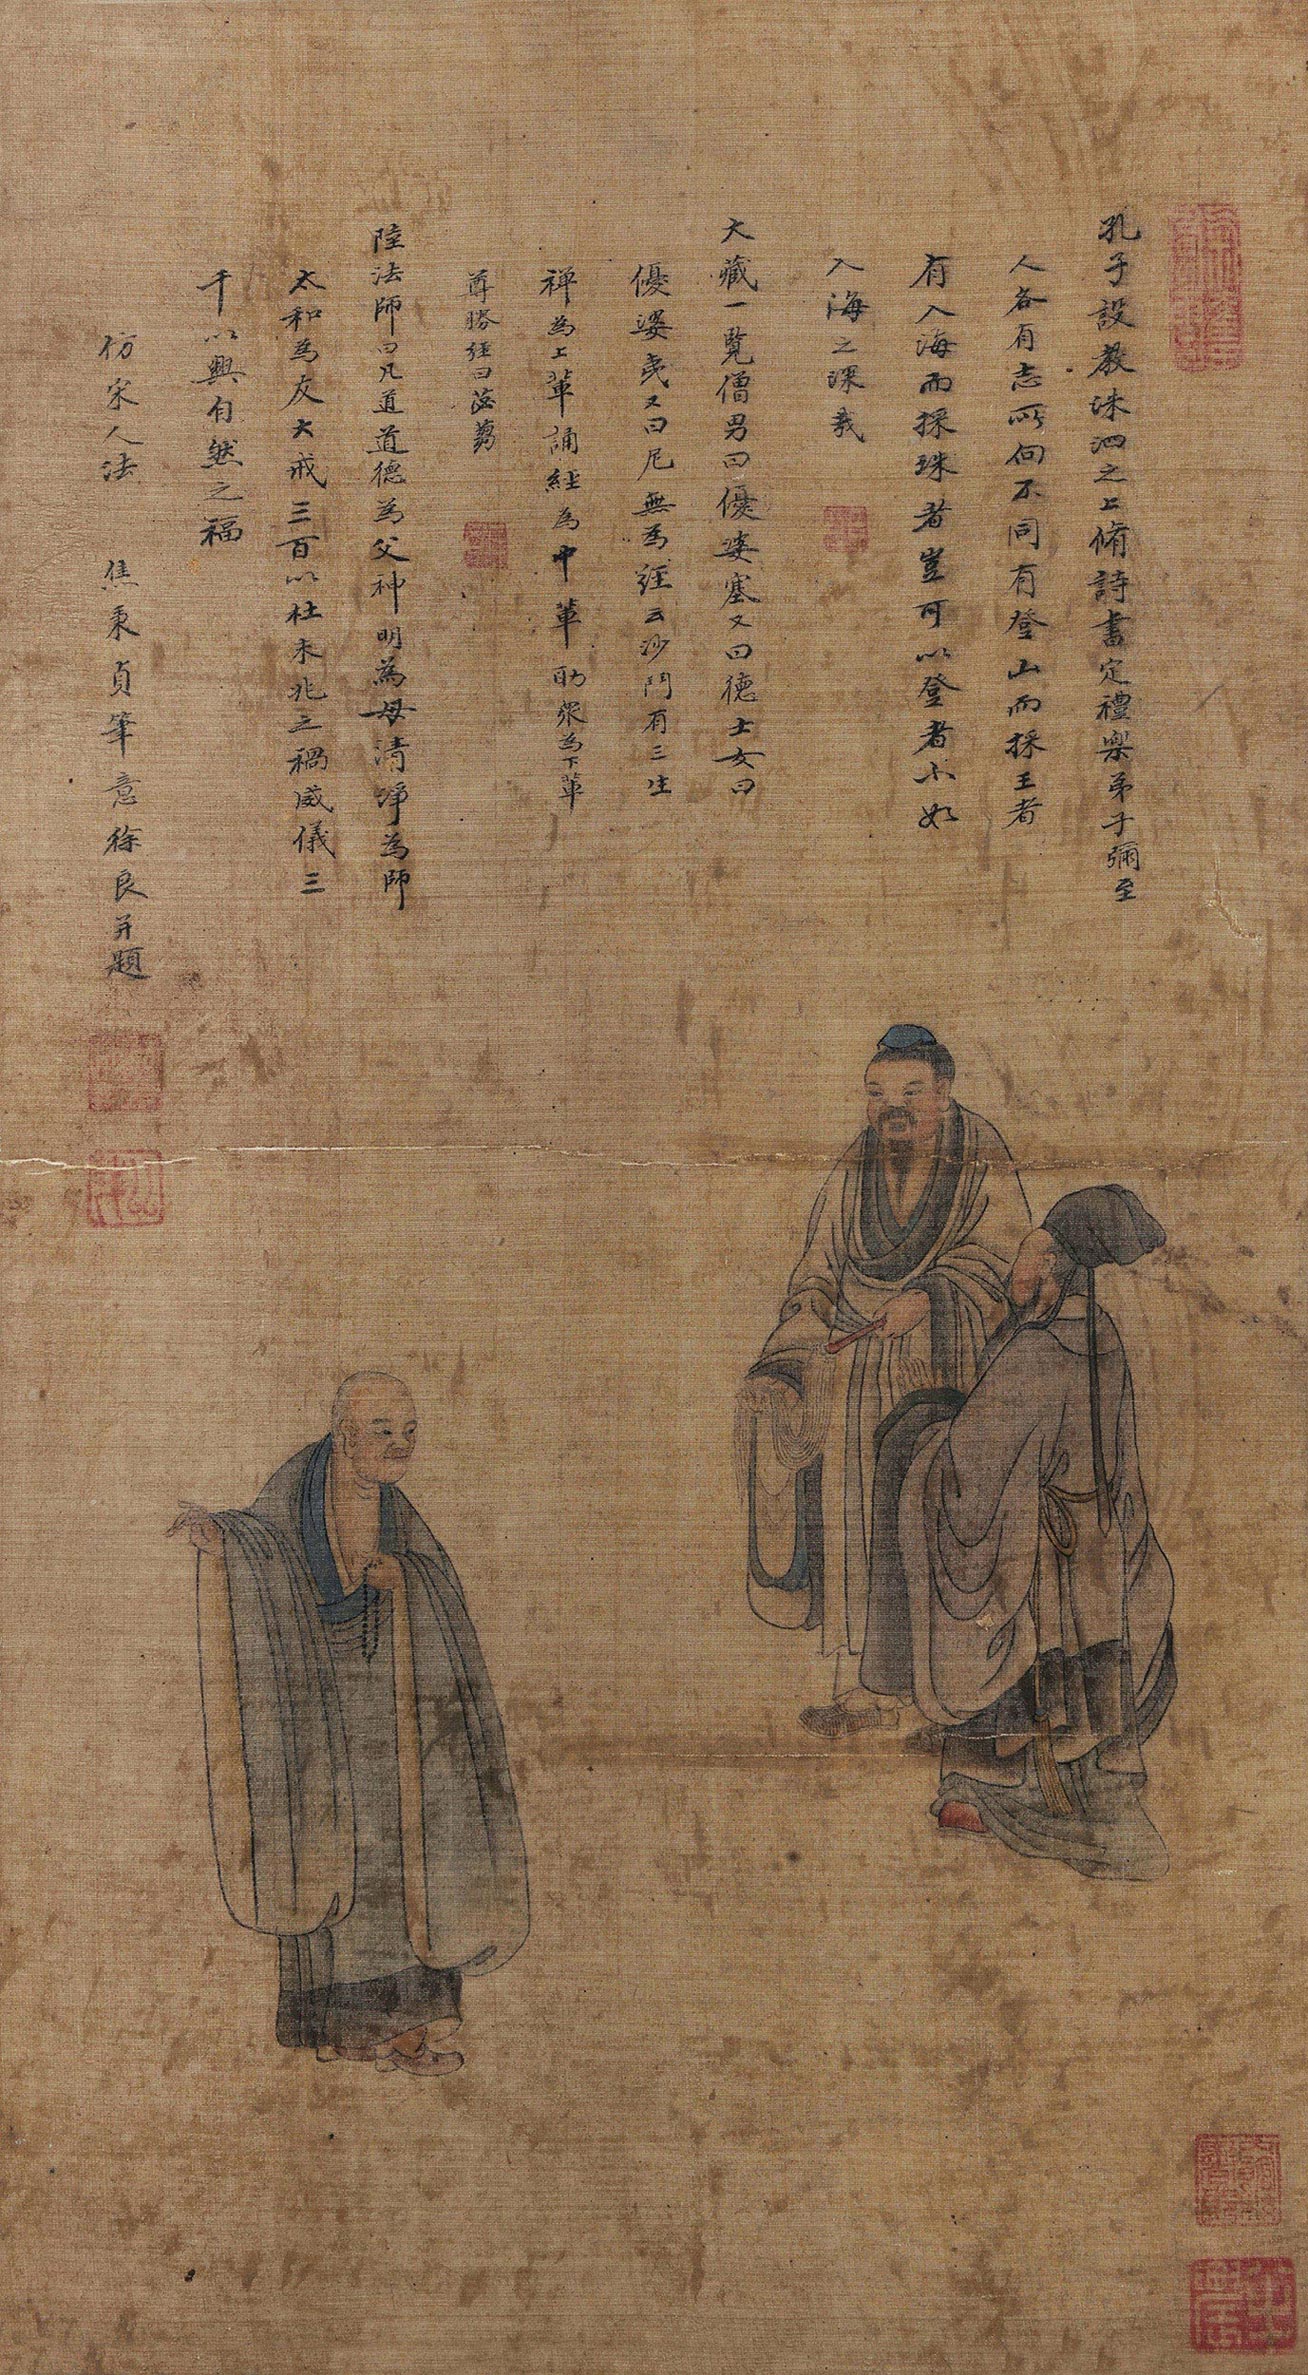 孔子設教洙泗之上脩詩書定禮樂弟子彌至
人各有志所向不同有登山而採玉者
有入海而採珠者豈可以登者小如
入海之深義
大藏一覧僧男曰優婆塞又曰德士女曰
優婆夷又曰尼無為經云沙門有三生
禅為上輩誦經為中輩助衆為下輩
尊勝經曰苾蒭
陸法師曰凡道道德為父神明為母清淨為師
太和為友大戒三百以杜未兆之禍威儀三
千以興自然之福
仿宋人法 焦秉貞筆意徐良并題